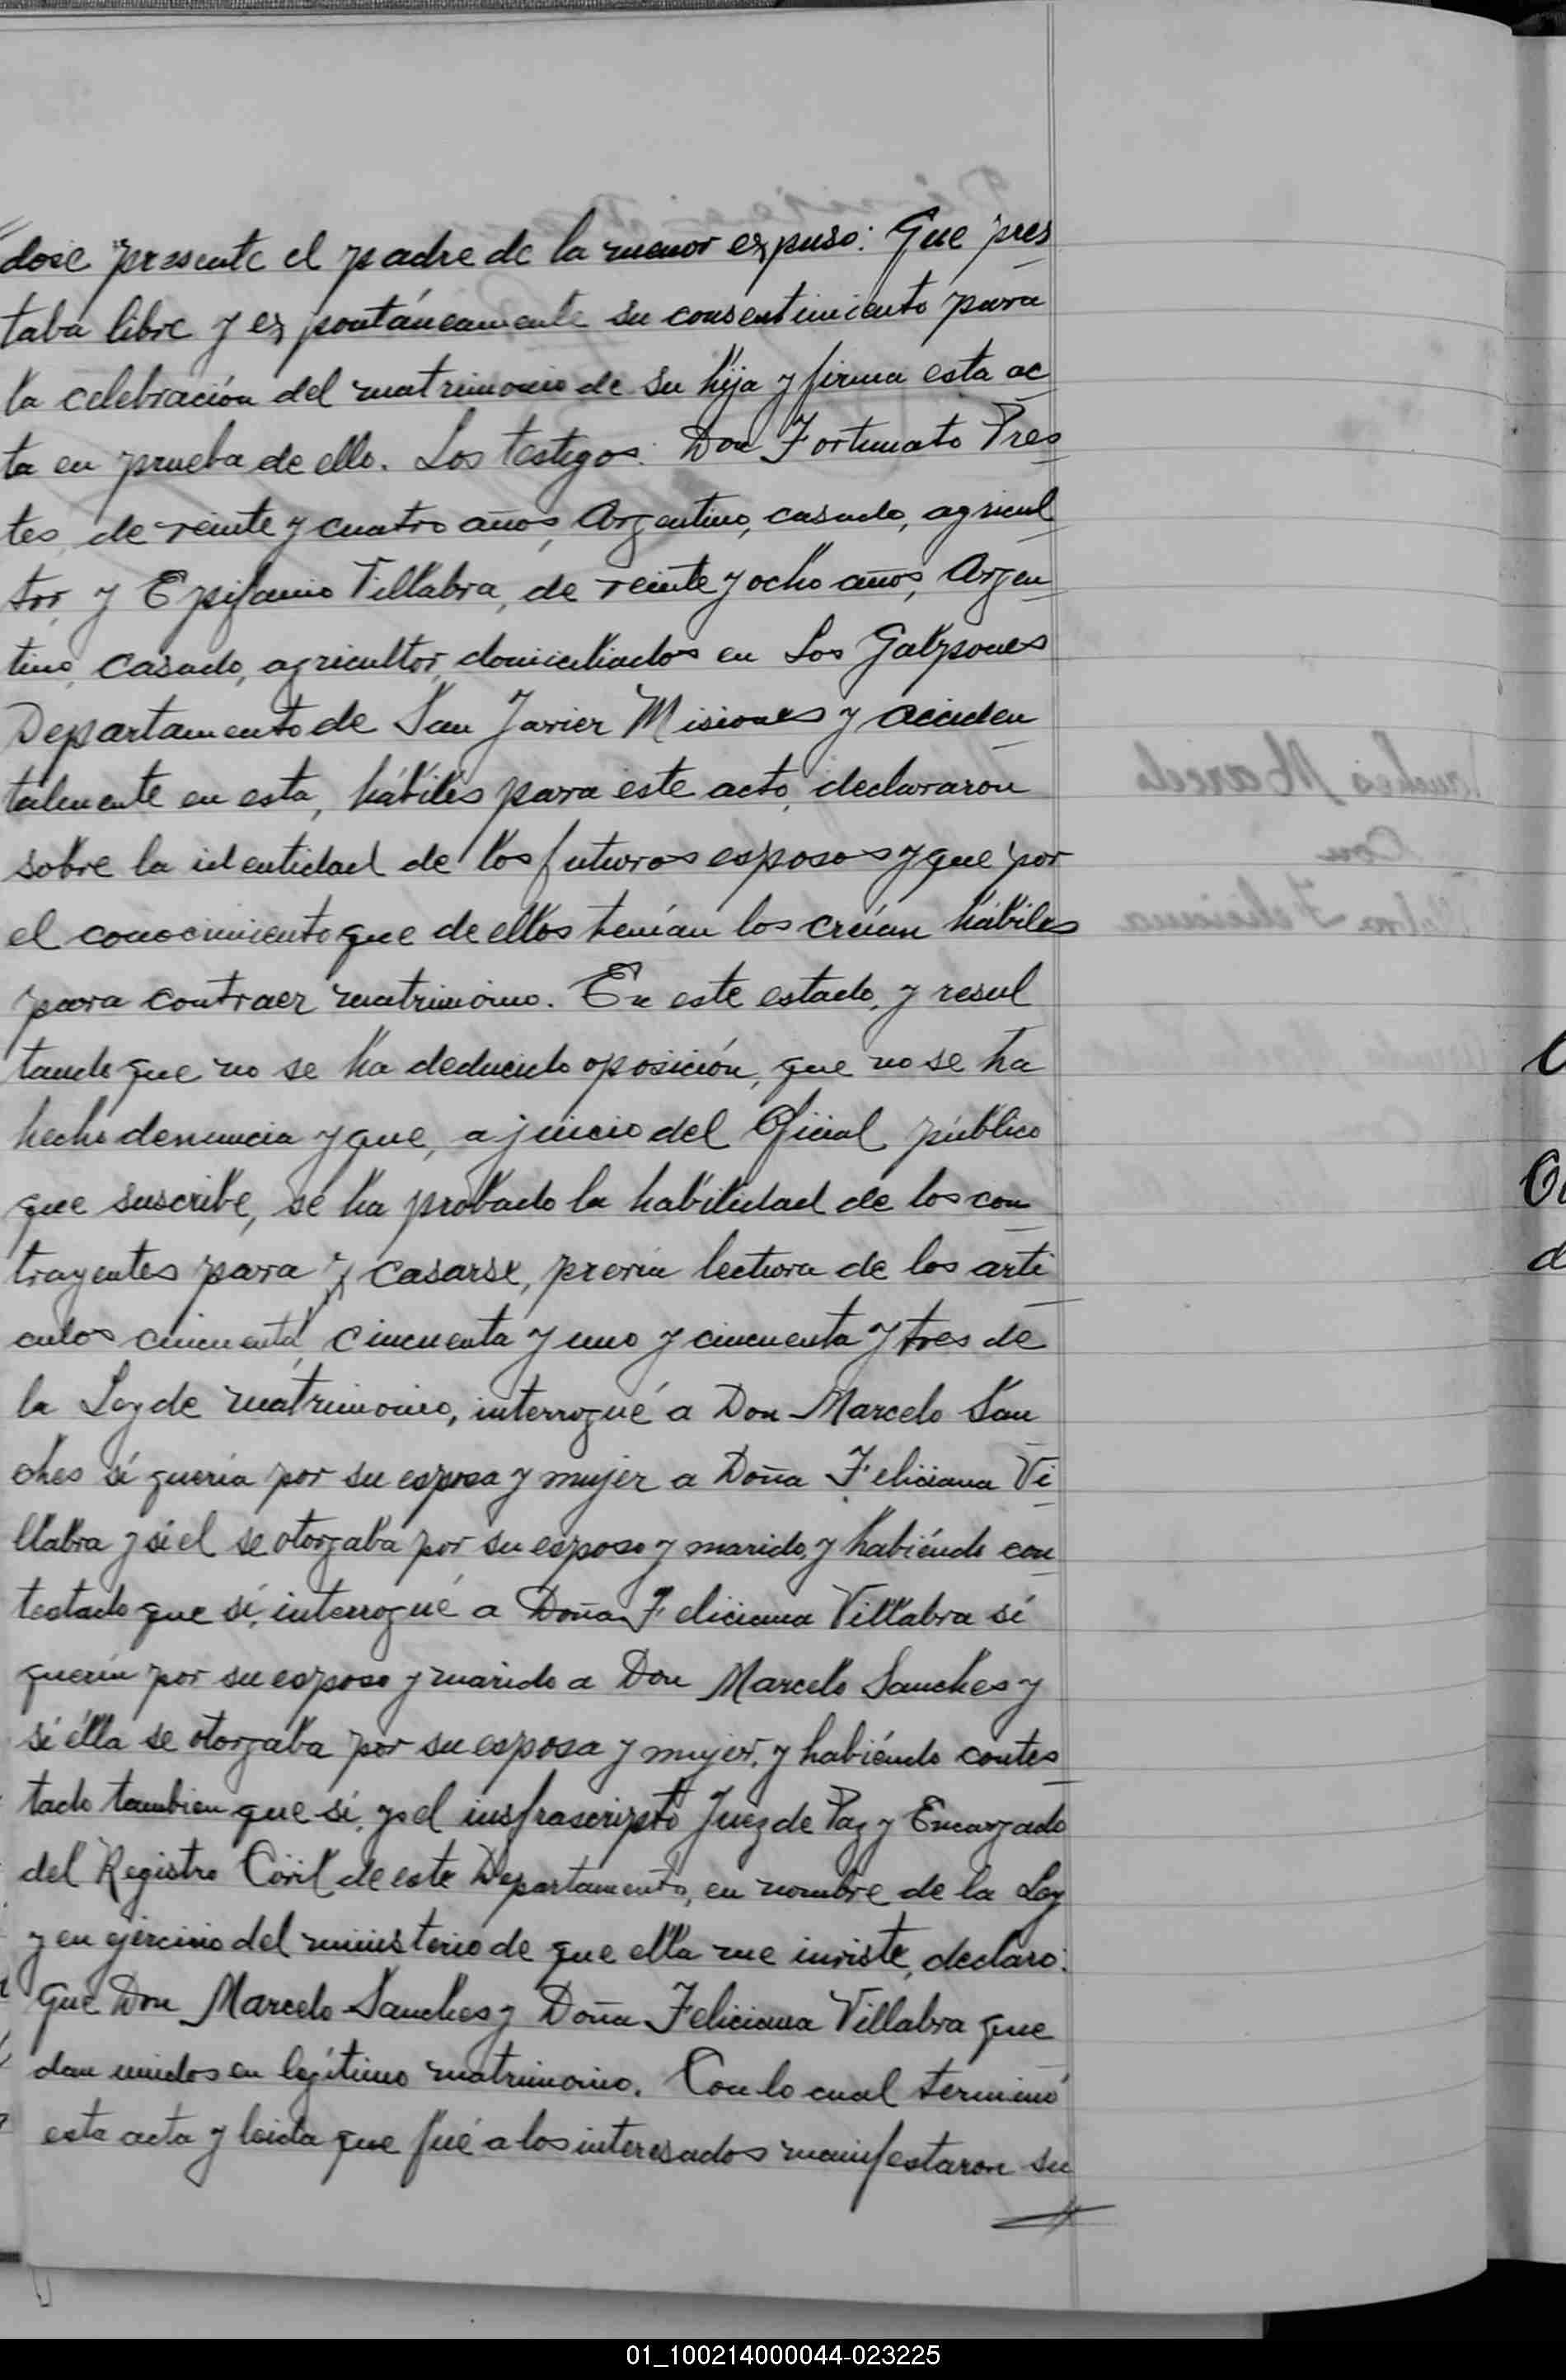 dose presente el padre de la menor expuso: Que pres
taba libre y expontáneamente su consentimiento para
la celebración del matrimonio de su hija y firma esta ac
ta en prueba de ello. Los testigos: Don Fortunato Pres
tes, de veinte y cuatro años, Argentino, casado, agricul
tor, y Epifanio Villabra, de veinte y ocho años, Argen
tino, casado, agricultor, domiciliados en Los Galpones
Departamento de San Javier Misiones y acciden
talmente en esta, hábiles para este acto, declararon
sobre la identidad de los futuros esposos y que por
el conocimiento que de ellos tenían los creían hábiles
para contraer matrimonio. En este estado, y resul
tando que no se ha deducido oposición, que no se ha
hecho denuncia y que, a juicio del Oficial público
que suscribe, se ha probado la habilidad de los con
trayentes para casarse, previa lectura de los arti
culos cincuenta, cincuenta y uno y cincuenta y tres de
la Ley de matrimonio, interrogué a Don Marcelo San
ches sí quería por su esposa y mujer a Doña Feliciana Vi
llabra y sí el se otorgaba por su esposo y marido, y habiéndo con
testado que sí, interrogué a Doña Feliciana Villabra sí
quería por su esposo y marido a Don Marcelo Sanches y
sí élla se otorgaba por su esposa y mujer, y habiéndo contes
tado tambien que sí, yo el insfrascripto Juez de Paz y Encargado
del Registro Civil de este Departamento, en nombre de la Ley
y en ejercicio del ministerio de que ella me inviste, declaro:
Que Don Marcelo Sanches y Doña Feliciana Villabra que
dan unidos en legítimo matrimonio. Con lo cual terminó
esta acta y leida que fué a los interesados manifestaron su
01_100214000044-023225